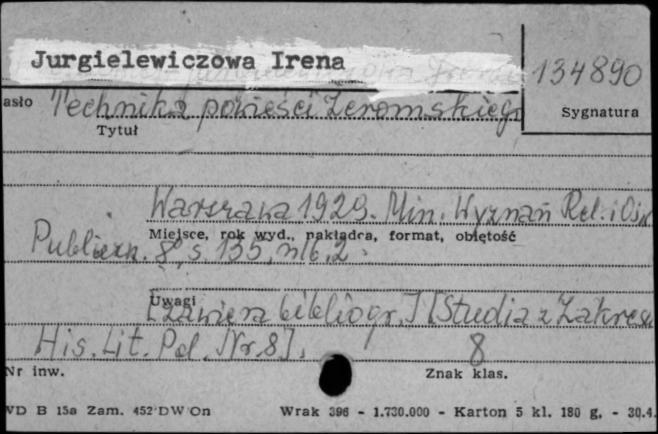 Jurgielewiczowa Irena
134890
asło Technika powieści Żeromskiego
Sygnatura
Tytuł
Warszawa 1929. Min. Wyznań Rel. i Ośw
Miejsce, rok wyd., nakładca, format, objętość
Publiczn. 8°, s. 135, nlb. 2
Uwagi
[Zawiera bibliogr.] [Studia z Zakresu
His. Lit. Pol. Nr 8].
8
Nr inw.
Znak klas.
WD B 15a Zam. 452 DW On
Wrak 396 - 1.730.000 - Karton 5 kl. 180 g. - 30.4.